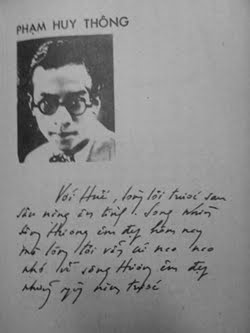 PHẠM HUY THÔNG
Với Huế, lòng tôi trước sau
sâu nặng ân tình. Song nhìn
sông Hương êm đẹp hôm nay
mà lòng tôi vẫn cứ neo neo
nhớ về sông Hương êm đẹp
những ngày hôm trước